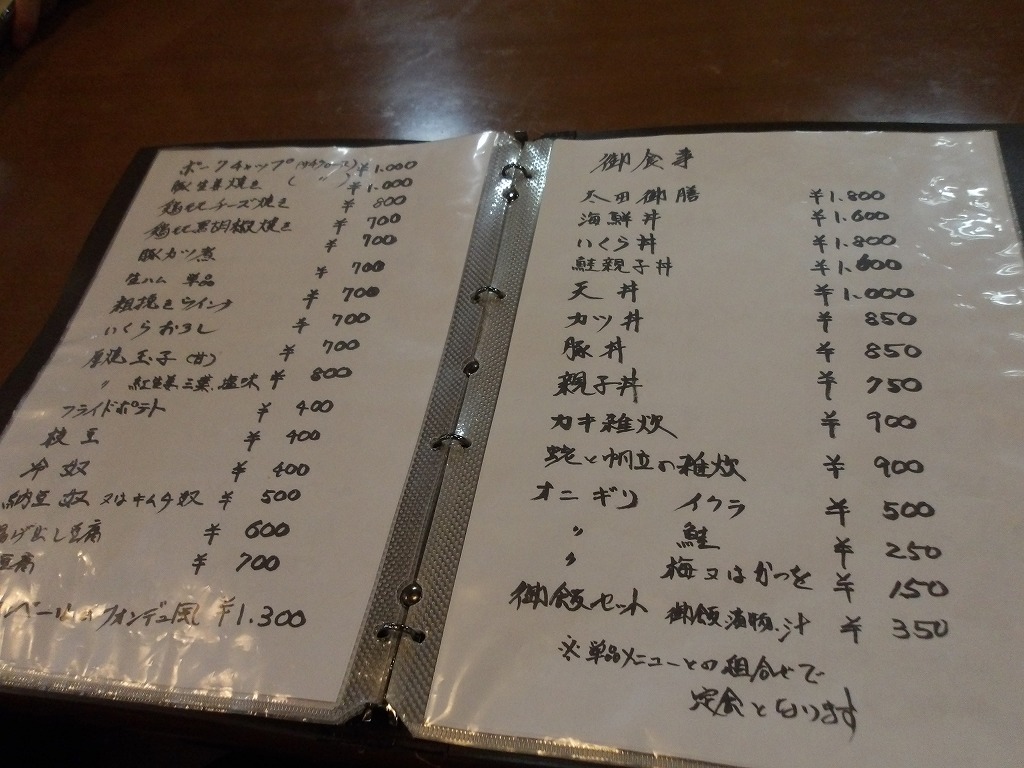 ポークチャップ ¥1.000
豚生姜焼き ( 〃 ) ¥1.000
鶏ももチーズ焼き ¥800
鶏もも黒胡椒焼き ¥700
豚カツ煮 ¥700
生ハム 単品 ¥700
粗挽きウインナ ¥700
いくらおろし ¥700
厚焼玉子(甘) ¥700
〃 紅生姜三葉塩味 ¥800
フライドポテト ¥400
枝豆 ¥400
冷奴 ¥400
納豆奴 又はキムチ奴 ¥500
揚げ出し豆腐 ¥600
豆腐 ¥700
フォンデュ風 ¥1.300
御食事
太田御膳 ¥1.800
海鮮丼 ¥1.600
いくら丼 ¥1.800
鮭親子丼 ¥1.600
天丼 ¥1.000
カツ丼 ¥850
豚丼 ¥850
親子丼 ¥750
カキ雑炊 ¥900
と帆立の雑炊 ¥900
オニギリ イクラ ¥500
〃 鮭 ¥250
〃 梅又はかつを ¥150
御飯セット 御飯 漬物.汁 ¥350
※単品メニューとの組合せで
定食となります